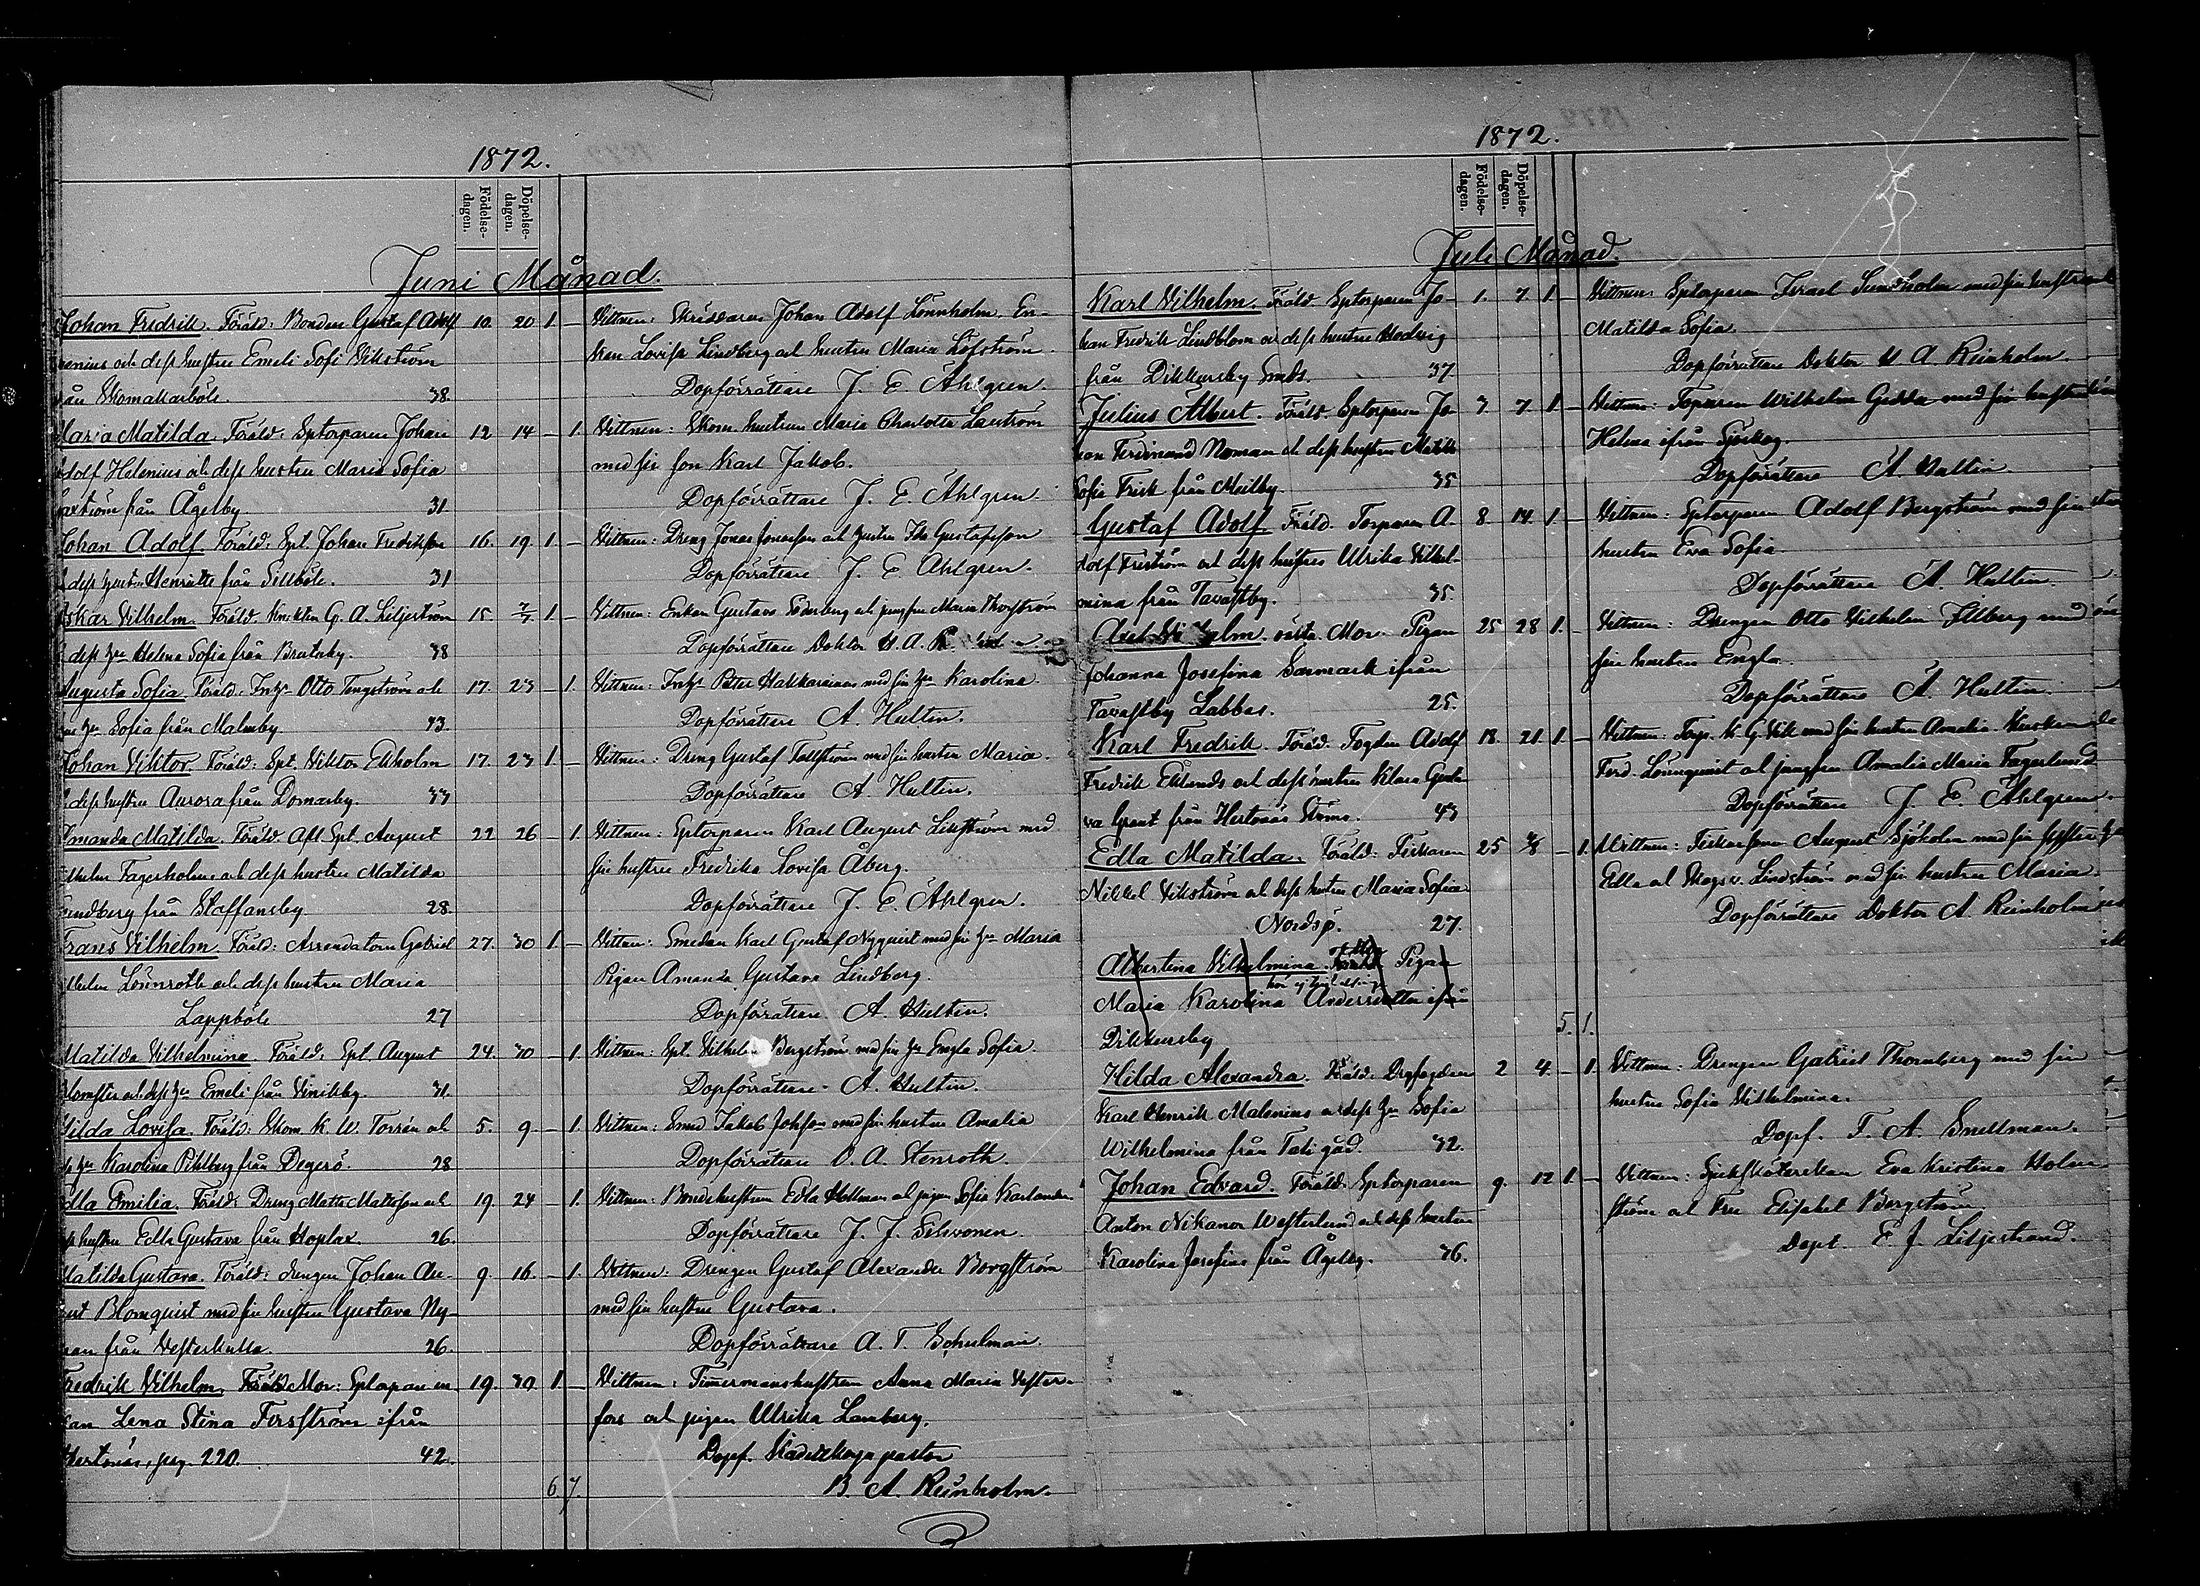 1872.
Födelse-dagen.
Döpelse-dagen.
Juni Månad.
Johan Fredrik. Föräld: Bonden Gustaf Adolf 10. 20 1. —
enius och dess hustru Emeli Sofi Vikström
från Skomakarböle. 38.
Vittnen: Skrädaren Johan Adolf Lönnholm En-
kan Lovisa Lindberg och hustru Maria Löfström
Dopförrättare J. E. Åhlgren
Maria Matilda. Föräld: Sptorparen Johan 12 14 — 1.
Adolf Helenius och dess hustru Maria Sofia
från Ågelby 31
Vittnen: Skom. hustrun Maria Charlotta
med sin son Karl Jakob.
Dopförrättare J. E. Åhlgren.
Johan Adolf. Föräld: Spt. Johan Fredriksson 16. 19. 1. —
& dess hustru Henriette från Sillböle. 31
Vittnen: Dreng Jonas Jonasson och hustru Ida Gustafsson
Dopförrättare J. E. Åhlgren.
Oskar Vilhelm. Föräld. Knekten G. A. Liljeström 15. 7/7 1. —
& dess hu Helena Sofia från Brutuby. 38
Vittnen: Enkan Gustava Söderberg och jungfru Maria
Dopförrättare Doktor
Augusta Sofia. Föräld: Inhys Otto Tengström och 17. 23 — 1.
hu Sofia från Malmby. 43.
Vittnen: Inhys Petter Hakkarainen med sin hu Karolina.
Dopförrättare A. Hultin.
Johan Viktor. Föräld: Spt. Viktor Ekholm 17. 23 1. —
& dess hustru Aurora från Domarby. 33
Vittnen: Dreng Gustaf Tallström med sin hustru Maria.
Dopförrättare A. Hultin.
Amanda Matilda. Föräld. Aft Spt. August 22 26 — 1.
Vilhelm Fagerholm och dess hustru Matilda
från Staffansby. 28.
Vittnen: Sptorparen Karl August Liliström med
sin hustru Fredrika Lovisa Åberg.
Dopförrättare J. E. Åhlgren.
Frans Vilhelm. Föräld: Arrendatorn Gabriel 27. 30 1. —
Vilhelm Lönnroth och dess hustru Maria
Lappböle 27
Vittnen: Smeden Karl Gustaf Nyquist med sin hu Maria
Pigan Amanda Gustava Lindberg.
Dopförrättare A. Hultin.
Matilda Vilhelmina. Föräld: Spt. August 24. 30 — 1.
Blomster och dess hu Emeli från Vinikby. 31.
Vittnen: Spt. Vilhelm Bergström med sin hu Engla Sofia.
Dopförrättare A. Hultin.
Hilda Lovisa. Föräld: Skom. K. W. Torrén och 5. 9 — 1.
hu Karolina Pihlberg från Degerö. 28
Vittnen: Smed Jakob Johsson med sin hustru Amalia
Dopförrättare O. A. Stenroth.
Edla Emilia. Föräld: Dreng Matts Mattsson och 19. 24 — 1.
dess hustru Edla Gustava från Hoplax. 26.
Vittnen: Bondehustrun Edla Hollman och pigan Sofia Karlander.
Dopförrättare J. J. Silvonen.
Matilda Gustava. Föräld: drengen Johan Au- 9. 16. — 1.
gust Blomquist med sin hustru Gustava Ny-
man från Vesterkulla. 26.
Vittnen: Drengen Gustaf Alexander Borgström
med sin hustru Gustava.
Dopförrättare A. T. Schulman.
Fredrik Vilhelm. Mor: Sptorparen 19. 30 1. —
kan Lena Stina Forsström ifrån
Hertonäs, pag. 220. 42
Vittnen: Timermanshustrun Anna Maria Vester-
fors och pigan Ulrika Lamberg.
Dopf. Kadettskogs pastor
B. A. Reinholm.
6. 7.
1872.
Födelse-dagen.
Döpelse-dagen.
Juli Månad.
Karl Vilhelm. Föräld Sptorparen Jo- 1. 7. 1. —
han Fredrik Lindblom och dess hustru Hedvig
från Dikkursby Smds. 37
Vittnen: Sptorparen Israel Sundholm med sin hustru
Matilda Sofia.
Dopförrättare Doktor H A. Reinholm
Julius Albert. Föräld. Sptorparen Jo- 3. 7 1. —
han Ferdinand Noman och dess hustru Matilda
Sofia Frisk från Meilby. 35
Vittnen: Torparen Wilhelm Gedda med sin hustru
Helena ifrån
Dopförrättare A. Hultin
Gustaf Adolf. Föräld. Torparen A- 8. 14. 1. —
dolf Friström och dess hustru Ulrika Vilhel-
mina från Tavastby. 35.
Vittnen: Sptorparen Adolf Bergström med sin
hustru Eva Sofia.
Dopförrättare A. Hultin
Axel Vilhelm. oäkta. Mor Pigan 25 28 1. —
Johanna Josefina Sarmark ifrån
Tavastby Labbas. 25.
Vittnen: Drengen Otto Vilhelm Filberg med
sin hustru Engla.
Dopförrättare A. Hultin.
Karl Fredrik. Föräld: Fogden Adolf 18 21 1. —
Fredrik Eklund och dess hustru Klara Gusta-
va Grönt från Hertonäs Ströms. 43
Vittnen: Torp. K. G. Vik med sin hustru Amalia.
Ferd. Lönnquist och jungfru Amalia Maria Fagerlund
Dopförrättare J. E. Åhlgren.
Edla Matilda. Föräld: Fiskaren 25 4/8 — 1.
Nikkel Vikström och dess hustru Maria Sofia
Nordsjö. 27.
Vittnen: Fiskarsonen August Sjöholm med sin syster
Edla och Lindström med sin hustru Maria
Dopförrättare Doktor A. Reinholm
Albertina Vilhelmina. Pigan
Maria Karolina Andersdotter ifrån
Dikkursby
5. 1.
Hilda Alexandra. Föräld: Drgfogden 2 4. — 1.
Karl Henrik Malenius och dess hu Sofia
Wilhelmina från Tali gård. 32.
Vittnen: Drengen Gabriel Thornberg med sin
hustru Sofia Vilhelmina.
Dopf. F. A. Snellman.
Johan Edvard. Föräld: Sptorparen 9. 12 1. —
Anton Nikanor Westerlund och dess hustru
Karolina Josefina från Ågelby. 36.
Vittnen: Sjuksköterskan Eva Kristina Holm-
ström och Fru Elisabet Bergström
Dopf. E. J. Liljestrand.